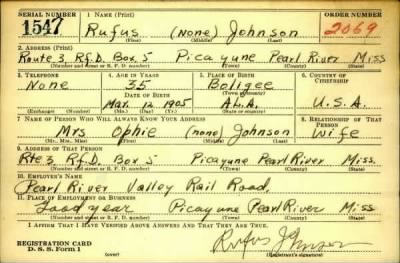 SERIAL NUMBER 1. NAME (Print) ORDER NUMBER
1547 Rufus (None) Johnson 2069
(First) (Middle) (Last)
2. ADDRESS (Print)
Route 3 R.f.D. Box 5 Picayune Pearl River Miss
(Number and street or R. F. D. number) (Town) (County) (State)
3. TELEPHONE 4. AGE IN YEARS 5. PLACE OF BIRTH 6. COUNTRY OF CITIZENSHIP
None 35 Boligee
DATE OF BIRTH (Town or county)
Mar. 12 1905 ALA. U.S.A.
(Exchange) (Number) (Mo.) (Day) (Yr.) (State or country)
7. NAME OF PERSON WHO WILL ALWAYS KNOW YOUR ADDRESS 8. RELATIONSHIP OF THAT PERSON
Mrs Ophie (none) Johnson Wife
(Mr., Mrs., Miss) (First) (Middle) (Last)
9. ADDRESS OF THAT PERSON
Rte 3 R.f.D. Box 5 Picayune Pearl River Miss.
(Number and street or R. F. D. number) (Town) (County) (State)
10. EMPLOYER'S NAME
Pearl River Valley Rail Road.
11. PLACE OF EMPLOYMENT OR BUSINESS
Good year Picayune Pearl River Miss
(Number and street or R. F. D. number) (Town) (County) (State)
I AFFIRM THAT I HAVE VERIFIED ABOVE ANSWERS AND THAT THEY ARE TRUE.
REGISTRATION CARD Rufus Johnson
D. S. S. Form 1 (over) (Registrant's signature)